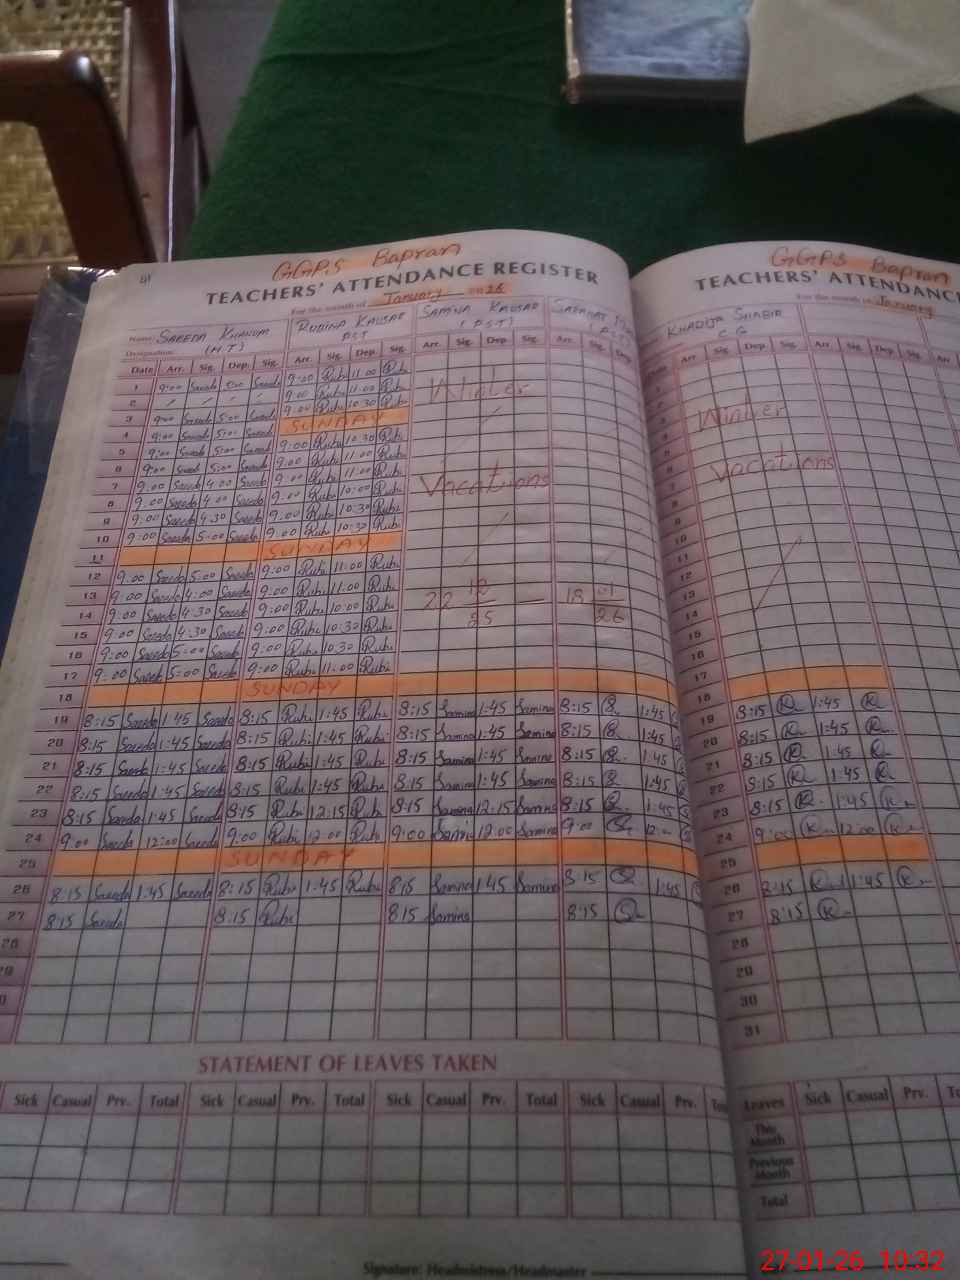 GGPS Bapran
TEACHERS' ATTENDANCE REGISTER
For the month of January 2026
Name SAEEDA KHANUM RUBINA KAUSAR SAMINA KAUSAR
Designation: (HT) PST (PST)
Date Arr. Sig. Dep. Sig. Arr. Sig. Dep. Sig. Arr. Sig. Dep. Sig. Arr. Sig. Dep.
1 9:00 Saeeda 5:00 Saeeda 9:00 Rubi 11:00 Rubi
2 9:00 Rubi 11:00 Rubi
3 9:00 Saeeda 5:00 Saeeda 9:00 Rubi 10:30 Rubi
Winter
4 SUNDAY
5 9:00 Saeeda 5:00 Saeeda 9:00 Rubi 10:30 Rubi
6 9:00 Saeeda 5:00 Saeeda 9:00 Rubi 11:00 Rubi
7 9:00 Saeeda 4:00 Saeeda 9:00 Rubi 11:00 Rubi
Vacations
8 9:00 Saeeda 4:00 Saeeda 9:00 Rubi 10:00 Rubi
9 9:00 Saeeda 4:30 Saeeda 9:00 Rubi 10:30 Rubi
10 9:00 Saeeda 5:00 Saeeda 9:00 Rubi 10:30 Rubi
11 SUNDAY
12 9:00 Saeeda 5:00 Saeeda 9:00 Rubi 11:00 Rubi
13 9:00 Saeeda 4:00 Saeeda 9:00 Rubi 11:00 Rubi
22 12 25 — 18 01 26
14 9:00 Saeeda 4:30 Saeeda 9:00 Rubi 10:00 Rubi
15 9:00 Saeeda 4:30 Saeeda 9:00 Rubi 10:30 Rubi
16 9:00 Saeeda 5:00 Saeeda 9:00 Rubi 10:30 Rubi
17 9:00 Saeeda 5:00 Saeeda 9:00 Rubi 11:00 Rubi
18 SUNDAY
19 8:15 Saeeda 1:45 Saeeda 8:15 Rubi 1:45 Rubi 8:15 Samina 1:45 Samina 8:15 1:45
20 8:15 Saeeda 1:45 Saeeda 8:15 Rubi 1:45 Rubi 8:15 Samina 1:45 Samina 8:15 1:45
21 8:15 Saeeda 1:45 Saeeda 8:15 Rubi 1:45 Rubi 8:15 Samina 1:45 Samina 8:15 1:45
22 8:15 Saeeda 1:45 Saeeda 8:15 Rubi 1:45 Rubi 8:15 Samina 1:45 Samina 8:15 1:45
23 8:15 Saeeda 1:45 Saeeda 8:15 Rubi 12:15 Rubi 8:15 Samina 12:15 Samina 8:15 1:45
24 9:00 Saeeda 12:00 Saeeda 9:00 Rubi 12:00 Rubi 9:00 Samina 12:00 Samina 9:00
25 SUNDAY
26 8:15 Saeeda 1:45 Saeeda 8:15 Rubi 1:45 Rubi 8:15 Samina 1:45 Samina 8:15 1:45
27 8:15 Saeeda 8:15 Rubi 8:15 Samina 8:15
28
29
STATEMENT OF LEAVES TAKEN
Sick Casual Prv. Total Sick Casual Prv. Total Sick Casual Prv. Total Sick Casual Prv.
Signature: Headmistress/Headmaster
GGPS Bapran
TEACHERS' ATTENDANCE
For the month of January
KHADIJA SHABIR
C.G
Arr. Sig. Dep. Sig. Arr. Sig. Dep. Sig. Arr
Winter
Vacations
7
8
9
10
11
12
13
14
15
16
17
18
19 8:15 K 1:45 K
20 8:15 K 1:45 K
21 8:15 K 1:45 K
22 8:15 K 1:45 K
23 8:15 K 1:45 K
24 9:00 K 12:00 K
25
26 8:15 K 1:45 K
27 8:15 K
28
29
30
31
Leaves Sick Casual Prv.
This Month
Previous Month
Total
27-01-26 10:32